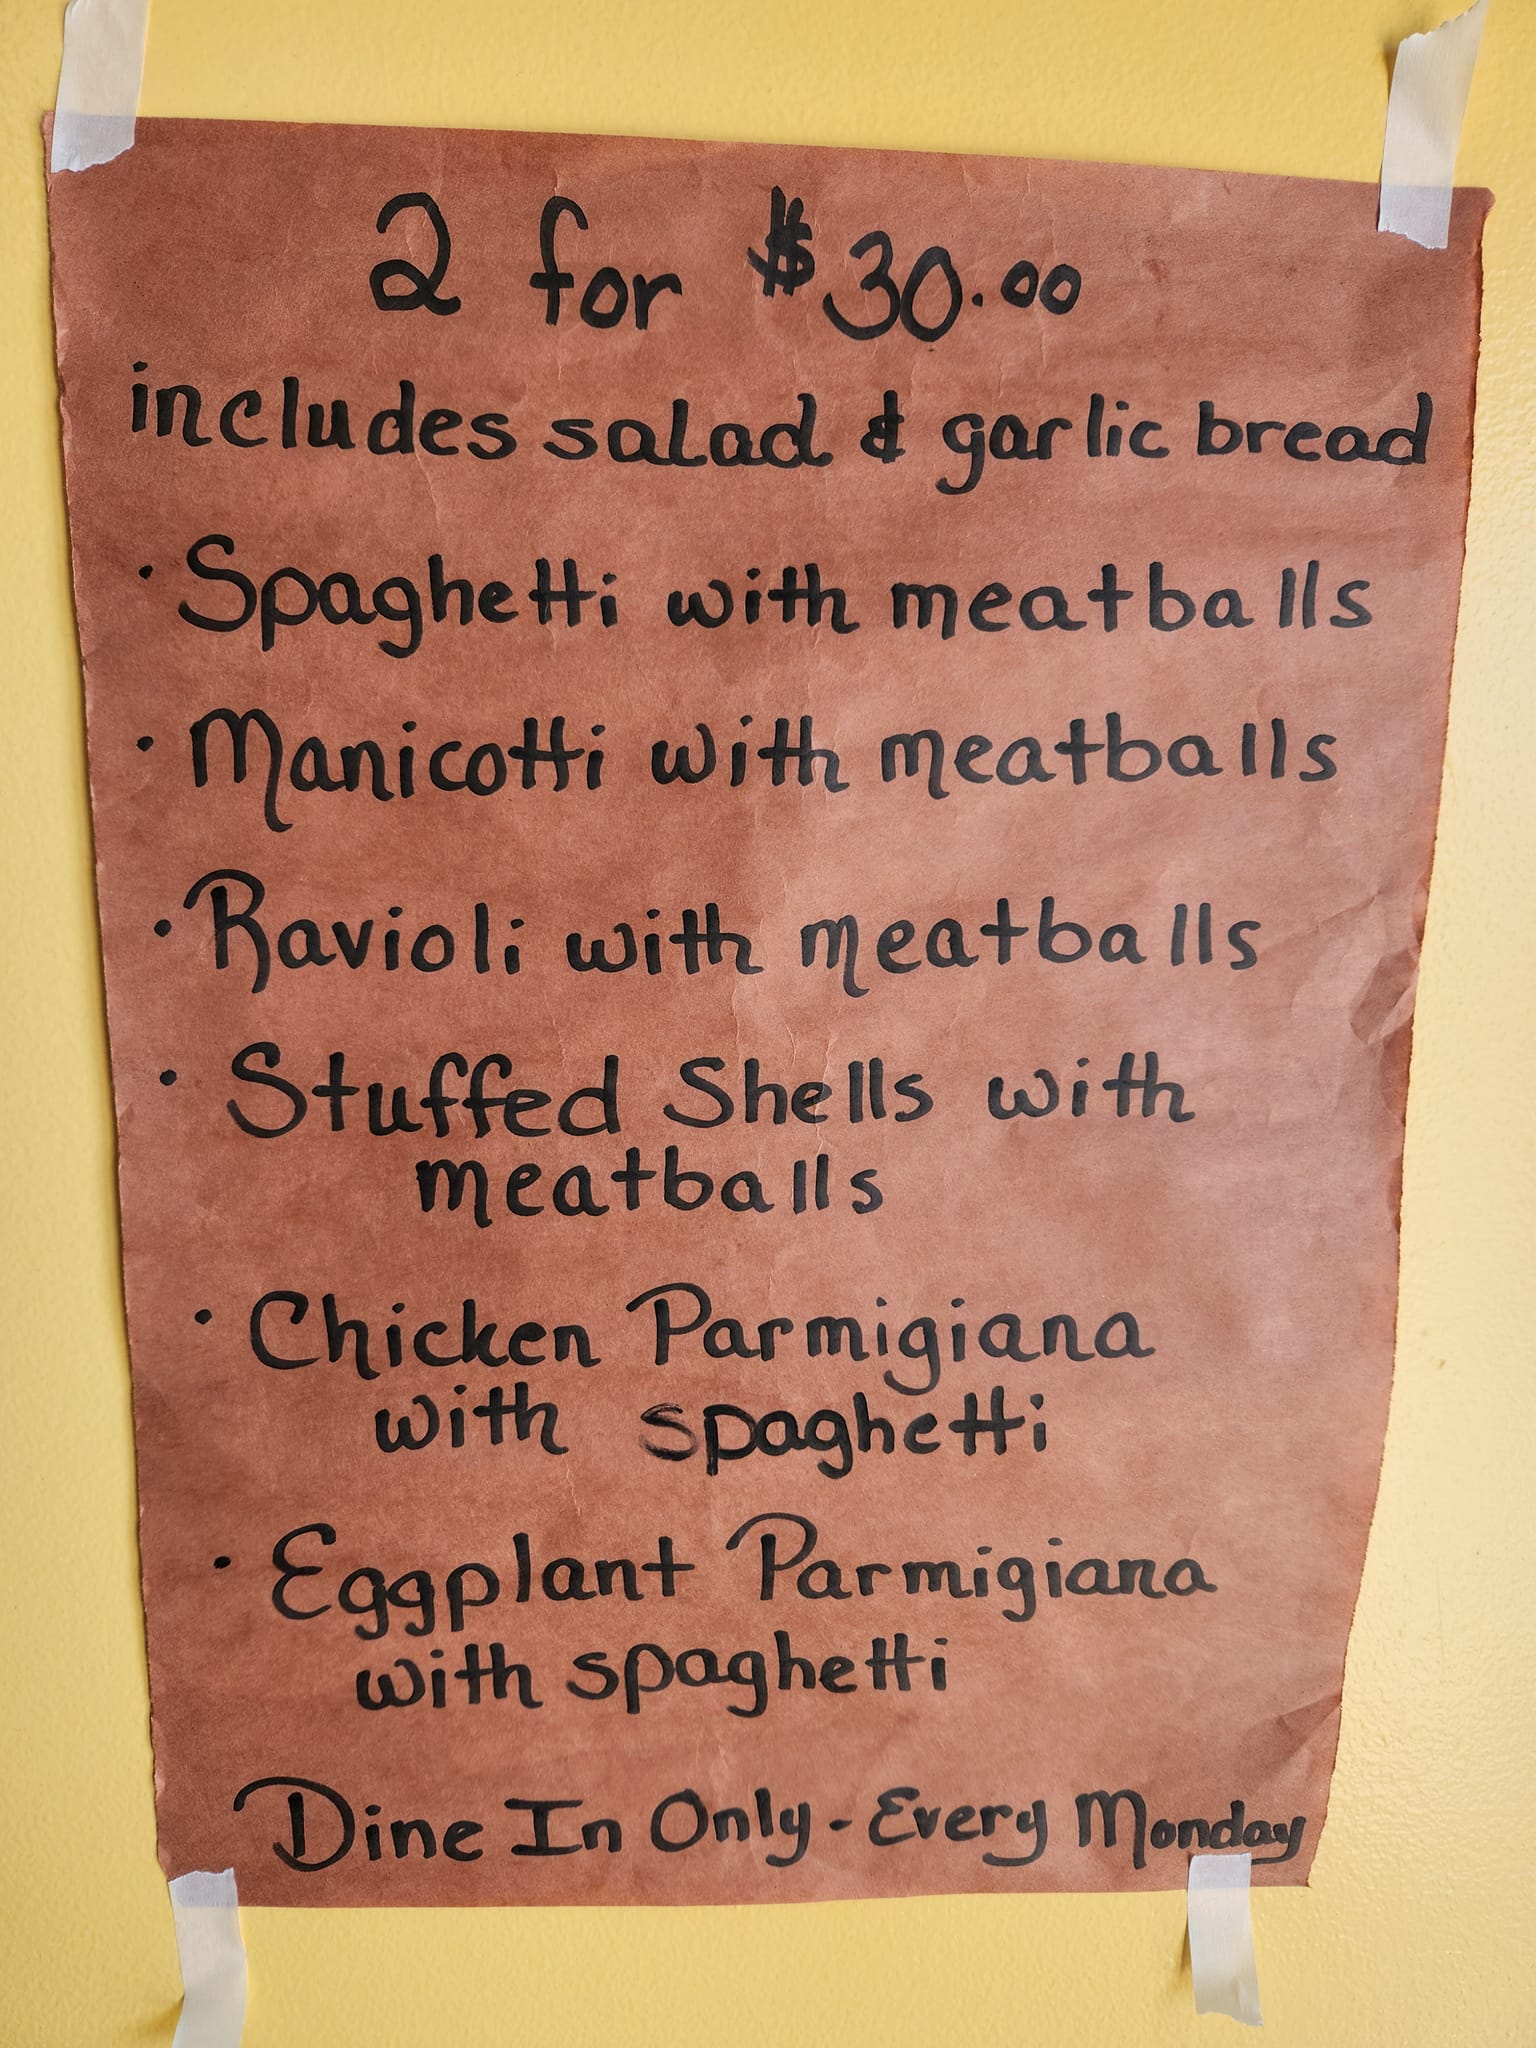 2 for $30.00
includes salad & garlic bread
· Spaghetti with meatballs
· Manicotti with meatballs
· Ravioli with meatballs
· Stuffed Shells with
meatballs
· Chicken Parmigiana
with spaghetti
· Eggplant Parmigiana
with spaghetti
Dine In Only - Every Monday